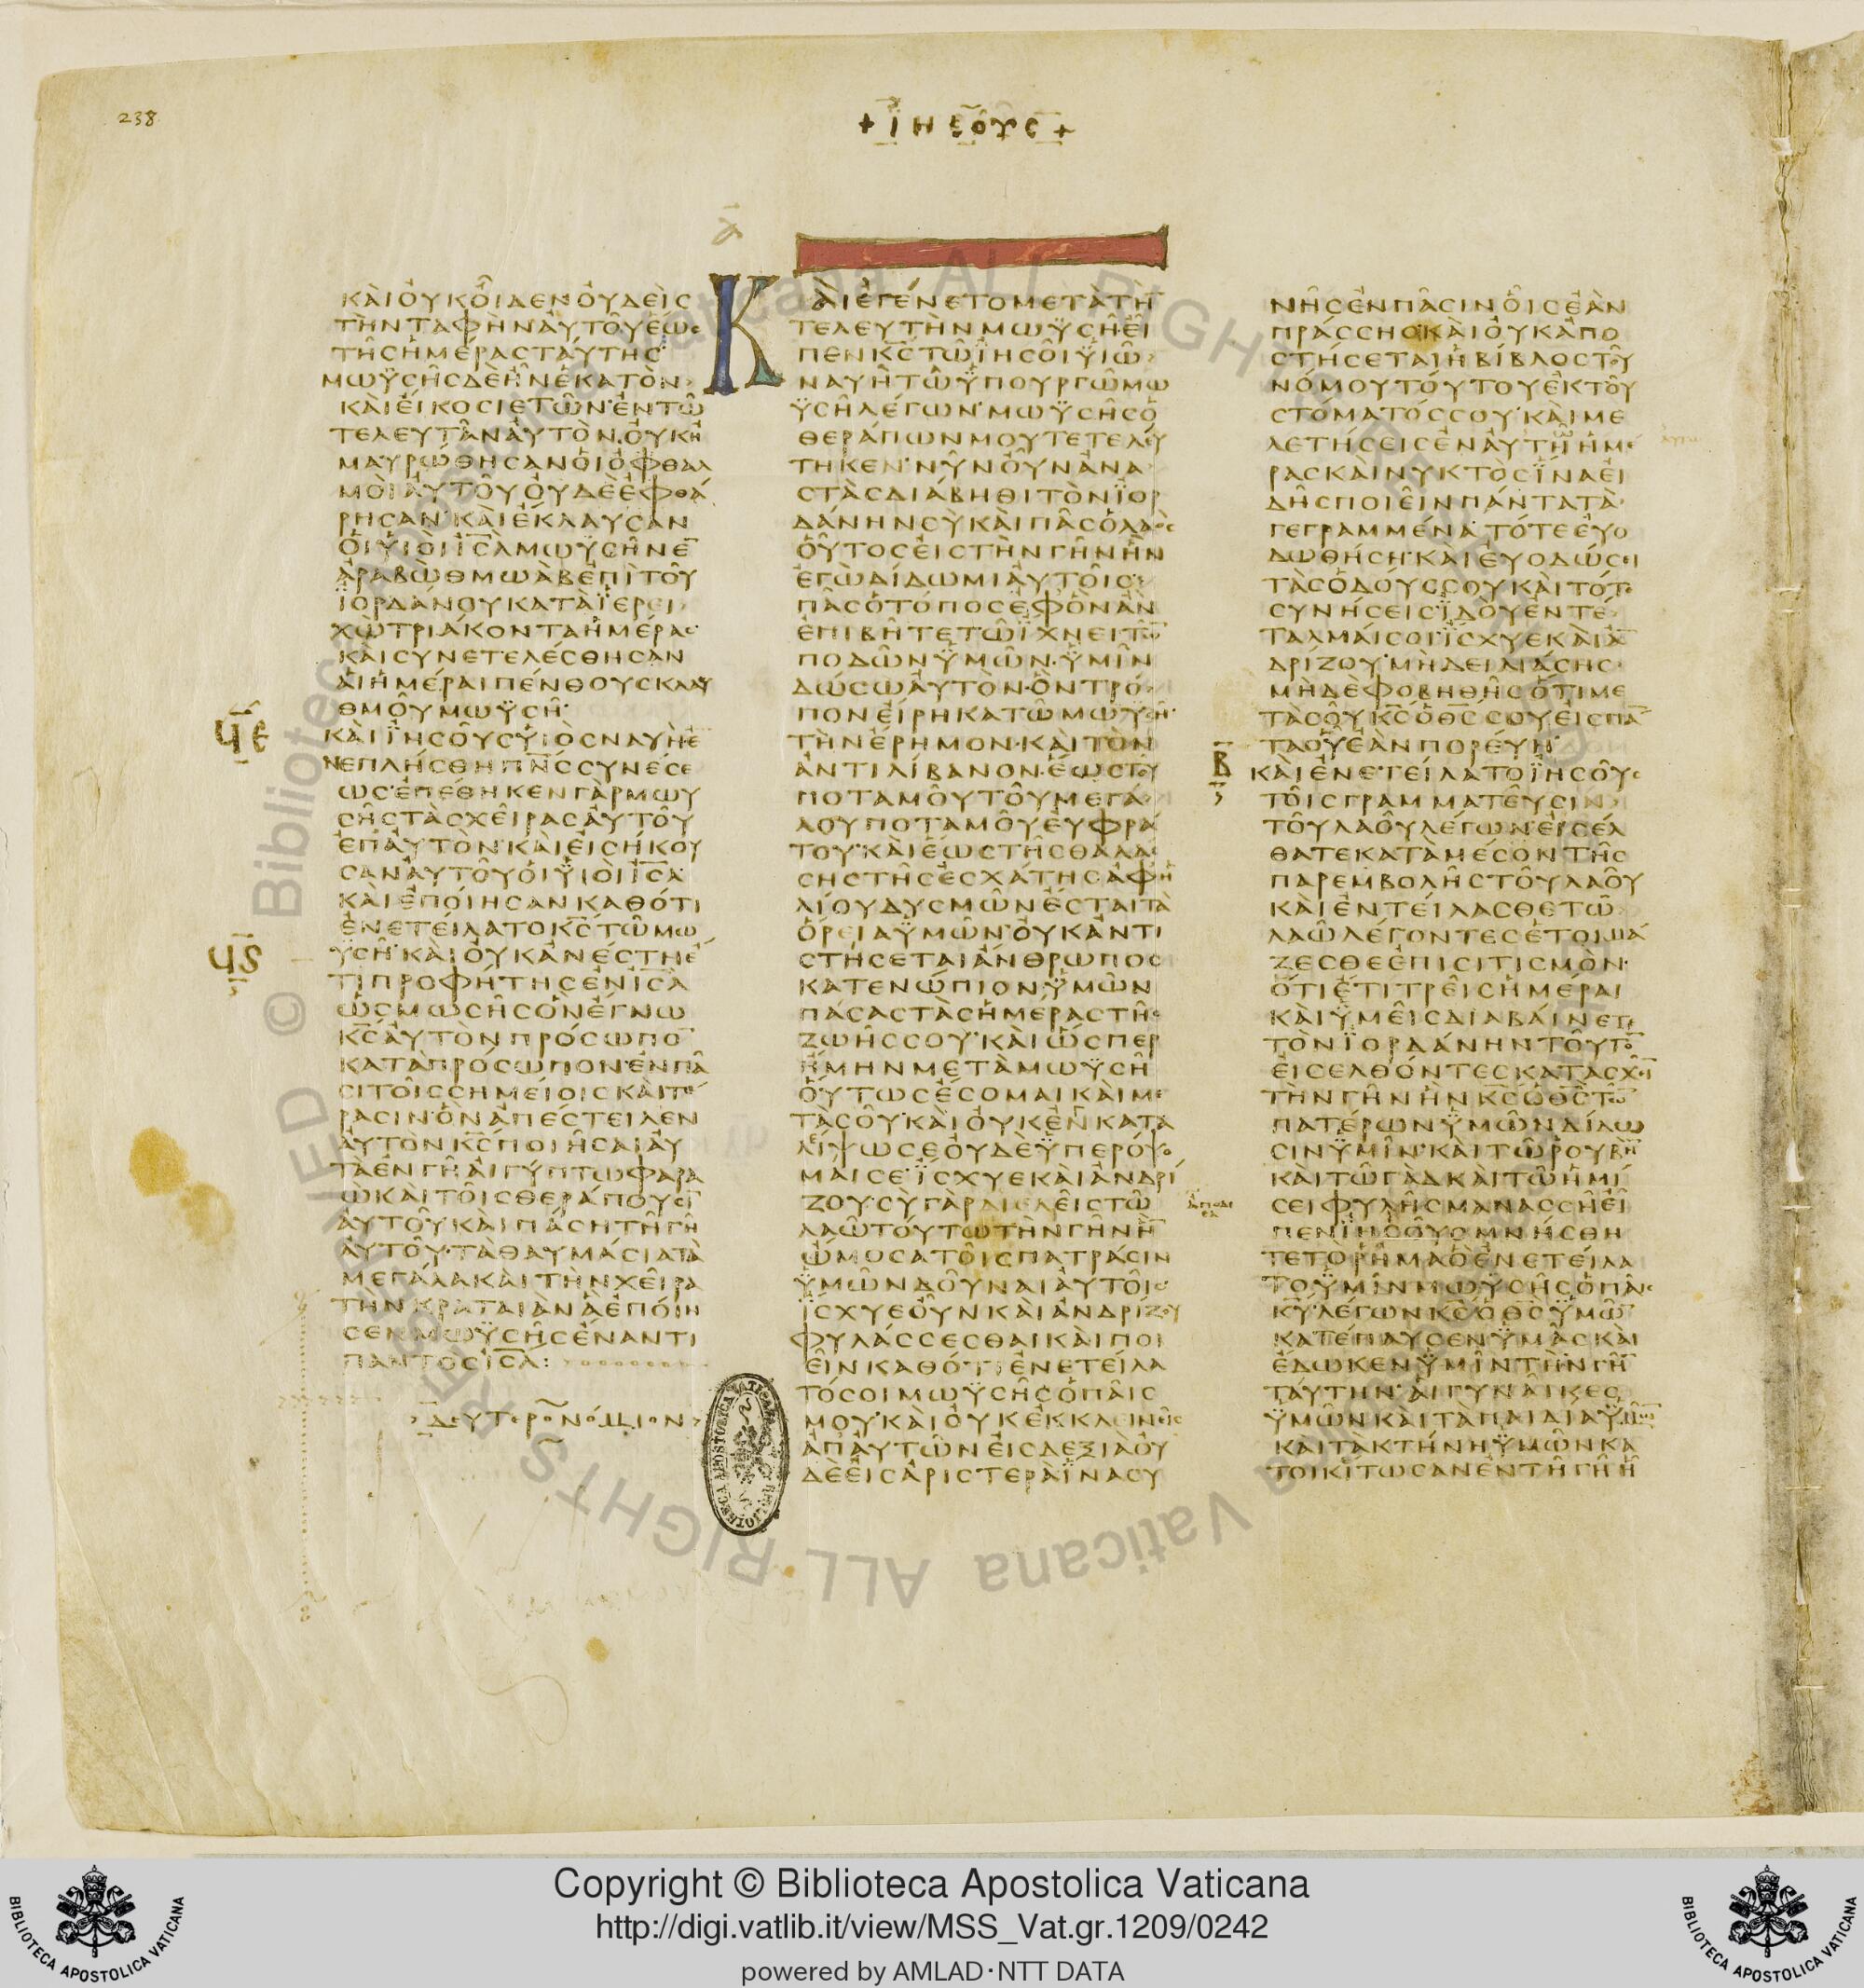 238
+ ΙΗΣΟΥΣ +
Α
ΚΑΙΟΥΚΟΙΔΕΝΟΥΔΕΙΣ
ΤΗΝΤΑΦΗΝΑΥΤΟΥΕΩΣ
ΤΗΣΗΜΕΡΑΣΤΑΥΤΗΣ
ΜΩΫΣΗΣΔΕΗΝΕΚΑΤΟΝ
ΚΑΙΕΙΚΟΣΙΕΤΩΝΕΝΤΩ
ΤΕΛΕΥΤΑΝΑΥΤΟΝΟΥΚΗ
ΜΑΥΡΩΘΗΣΑΝΟΙΟΦΘΑΛ
ΜΟΙΑΥΤΟΥΟΥΔΕΕΦΘΑ
ΡΗΣΑΝΚΑΙΕΚΛΑΥΣΑΝ
ΟΙΥΙΟΙΙΣΛΜΩΥΣΗΝΕ
ΑΡΑΒΩΘΜΩΑΒΕΠΙΤΟΥ
ΪΟΡΔΑΝΟΥΚΑΤΑΪΕΡΕΙ
ΧΩΤΡΙΑΚΟΝΤΑΗΜΕΡΑΣ
ΚΑΙΣΥΝΕΤΕΛΕΣΘΗΣΑΝ
ΑΙΗΜΕΡΑΙΠΕΝΘΟΥΣΚΛΑΥ
ΘΜΟΥΜΩΫΣΗ
ϤΕ
ΚΑΙΪΗΣΟΥΣΥΙΟΣΝΑΥΗΕ
ΝΕΠΛΗΣΘΗΠΝΣΣΥΝΕΣΕ
ΩΣΕΠΕΘΗΚΕΝΓΑΡΜΩΥ
ΣΗΣΤΑΣΧΕΙΡΑΣΑΥΤΟΥ
ΕΠΑΥΤΟΝΚΑΙΕΙΣΗΚΟΥ
ΣΑΝΑΥΤΟΥΟΙΥΙΟΙΙΣΛ
ΚΑΙΕΠΟΙΗΣΑΝΚΑΘΟΤΙ
ΕΝΕΤΕΙΛΑΤΟΚΣΤΩΜΩ
ϤϚ
ΫΣΗΚΑΙΟΥΚΑΝΕΣΤΗΕ
ΤΙΠΡΟΦΗΤΗΣΕΝΙΣΛ
ΩΣΜΩΣΗΣΟΝΕΓΝΩ
ΚΣΑΥΤΟΝΠΡΟΣΩΠΟ
ΚΑΤΑΠΡΟΣΩΠΟΝΕΝΠΑ
ΣΙΤΟΙΣΣΗΜΕΙΟΙΣΚΑΙΤΕ
ΡΑΣΙΝΟΝΑΠΕΣΤΕΙΛΕΝ
ΑΥΤΟΝΚΣΠΟΙΗΣΑΙΑΥ
ΤΑΕΝΓΗΑΙΓΥΠΤΩΦΑΡΑ
ΩΚΑΙΤΟΙΣΘΕΡΑΠΟΥΣΙ
ΑΥΤΟΥΚΑΙΠΑΣΗΤΗΓΗ
ΑΥΤΟΥΤΑΘΑΥΜΑΣΙΑΤΑ
ΜΕΓΑΛΑΚΑΙΤΗΝΧΕΙΡΑ
ΤΗΝΚΡΑΤΑΙΑΝΑΕΠΟΙΗ
ΣΕΝΜΩΫΣΗΣΕΝΑΝΤΙ
ΠΑΝΤΟΣΙΣΛ:
ΔΕΥΤΕΡΟΝΟΜΙΟΝ
ΚΑΙΕΓΕΝΕΤΟΜΕΤΑΤΗ
ΤΕΛΕΥΤΗΝΜΩΫΣΗΕΙ
ΠΕΝΚΣΤΩΪΗΣΟΙΥΙΩ
ΝΑΥΗΤΩΫΠΟΥΡΓΩΜΩ
ΫΣΗΛΕΓΩΝΜΩΫΣΗΣΟ
ΘΕΡΑΠΩΝΜΟΥΤΕΤΕΛΕΥ
ΤΗΚΕΝΝΥΝΟΥΝΑΝΑ
ΣΤΑΣΔΙΑΒΗΘΙΤΟΝΪΟΡ
ΔΑΝΗΝΣΥΚΑΙΠΑΣΟΛΑΟΣ
ΟΥΤΟΣΕΙΣΤΗΝΓΗΝΗΝ
ΕΓΩΔΙΔΩΜΙΑΥΤΟΙΣ
ΠΑΣΟΤΟΠΟΣΕΦΟΝΑΝ
ΕΠΙΒΗΤΕΤΩΪΧΝΕΙΤΩ
ΠΟΔΩΝΫΜΩΝΫΜΙΝ
ΔΩΣΩΑΥΤΟΝΟΝΤΡΟ
ΠΟΝΕΙΡΗΚΑΤΩΜΩΥΣΗ
ΤΗΝΕΡΗΜΟΝΚΑΙΤΟΝ
ΑΝΤΙΛΙΒΑΝΟΝΕΩΣΤΟΥ
ΠΟΤΑΜΟΥΤΟΥΜΕΓΑ
ΛΟΥΠΟΤΑΜΟΥΕΥΦΡΑ
ΤΟΥΚΑΙΕΩΣΤΗΣΘΑΛΑΣ
ΣΗΣΤΗΣΕΣΧΑΤΗΣΑΦΗ
ΛΙΟΥΔΥΣΜΩΝΕΣΤΑΙΤΑ
ΟΡΕΙΑΫΜΩΝΟΥΚΑΝΤΙ
ΣΤΗΣΕΤΑΙΑΝΘΡΩΠΟΣ
ΚΑΤΕΝΩΠΙΟΝΫΜΩΝ
ΠΑΣΑΣΤΑΣΗΜΕΡΑΣΤΗΣ
ΖΩΗΣΣΟΥΚΑΙΩΣΠΕΡ
ΗΜΗΝΜΕΤΑΜΩΫΣΗ
ΟΥΤΩΣΕΣΟΜΑΙΚΑΙΜΕ
ΤΑΣΟΥΚΑΙΟΥΚΕΝΚΑΤΑ
ΛΕΙΨΩΣΕΟΥΔΕΫΠΕΡΟΨΟ
ΜΑΙΣΕΪΣΧΥΕΚΑΙΑΝΔΡΙ
ΖΟΥΣΥΓΑΡΔΙΕΛΕΙΣΤΩ
ΛΑΩΤΟΥΤΩΤΗΝΓΗΝΗ
ΩΜΟΣΑΤΟΙΣΠΑΤΡΑΣΙΝ
ΫΜΩΝΔΟΥΝΑΙΑΥΤΟΙΣ
ΪΣΧΥΕΟΥΝΚΑΙΑΝΔΡΙΖΟΥ
ΦΥΛΑΣΣΕΣΘΑΙΚΑΙΠΟΙ
ΕΙΝΚΑΘΟΤΙΕΝΕΤΕΙΛΑ
ΤΟΣΟΙΜΩΫΣΗΣΟΠΑΙΣ
ΜΟΥΚΑΙΟΥΚΕΚΚΛΕΙΝΕΙΣ
ΑΠΑΥΤΩΝΕΙΣΔΕΞΙΑΟΥ
ΔΕΕΙΣΑΡΙΣΤΕΡΑΪΝΑΣΥ
ΝΗΣΕΝΠΑΣΙΝΟΙΣΕΑΝ
ΠΡΑΣΣΗΣΚΑΙΟΥΚΑΠΟ
ΣΤΗΣΕΤΑΙΗΒΙΒΛΟΣΤΟΥ
ΝΟΜΟΥΤΟΥΤΟΥΕΚΤΟΥ
ΣΤΟΜΑΤΟΣΣΟΥΚΑΙΜΕ
ΛΕΤΗΣΕΙΣΕΝΑΥΤΗΗΜΕ
ΡΑΣΚΑΙΝΥΚΤΟΣΪΝΑΕΙ
ΔΗΣΠΟΙΕΙΝΠΑΝΤΑΤΑ
ΓΕΓΡΑΜΜΕΝΑΤΟΤΕΕΥΟ
ΔΩΘΗΣΗΚΑΙΕΥΟΔΩΣΕΙ
ΤΑΣΟΔΟΥΣΣΟΥΚΑΙΤΟΤΕ
ΣΥΝΗΣΕΙΣΪΔΟΥΕΝΤΕ
ΤΑΛΜΑΙΣΟΙΪΣΧΥΕΚΑΙΑ
ΔΡΙΖΟΥΜΗΔΕΙΛΙΑΣΗΣ
ΜΗΔΕΦΟΒΗΘΗΣΟΤΙΜΕ
ΤΑΣΟΥΚΣΟΘΣΣΟΥΕΙΣΠΑ
ΤΑΟΥΕΑΝΠΟΡΕΥΗ
Β
ΚΑΙΕΝΕΤΕΙΛΑΤΟΪΗΣΟΥΣ
ΤΟΙΣΓΡΑΜΜΑΤΕΥΣΙΝ
ΤΟΥΛΑΟΥΛΕΓΩΝΕΙΣΕΛ
ΘΑΤΕΚΑΤΑΜΕΣΟΝΤΗΣ
ΠΑΡΕΜΒΟΛΗΣΤΟΥΛΑΟΥ
ΚΑΙΕΝΤΕΙΛΑΣΘΕΤΩ
ΛΑΩΛΕΓΟΝΤΕΣΕΤΟΙΜΑ
ΖΕΣΘΕΕΠΙΣΙΤΙΣΜΟΝ
ΟΤΙΕΤΙΤΡΕΙΣΗΜΕΡΑΙ
ΚΑΙΫΜΕΙΣΔΙΑΒΑΙΝΕΤΕ
ΤΟΝΪΟΡΔΑΝΗΝΤΟΥΤΟ
ΕΙΣΕΛΘΟΝΤΕΣΚΑΤΑΣΧΕΙ
ΤΗΝΓΗΝΗΝΚΣΟΘΣΤΩ
ΠΑΤΕΡΩΝΫΜΩΝΔΙΔΩ
ΣΙΝΫΜΙΝΚΑΙΤΩΡΟΥΒΗ
ΚΑΙΤΩΓΑΔΚΑΙΤΩΗΜΙ
ΣΕΙΦΥΛΗΣΜΑΝΑΣΣΗΕΙ
ΠΕΝΙΗΣΟΥΣΜΝΗΣΘΗ
ΤΕΤΟΡΗΜΑΟΕΝΕΤΕΙΛΑ
ΤΟΫΜΙΝΜΩΫΣΗΣΟΠΑΙΣ
ΚΥΛΕΓΩΝΚΣΟΘΣΫΜΩ
ΚΑΤΕΠΑΥΣΕΝΫΜΑΣΚΑΙ
ΕΔΩΚΕΝΫΜΙΝΤΗΝΓΗ
ΤΑΥΤΗΝΑΙΓΥΝΑΙΚΕΣ
ΫΜΩΝΚΑΙΤΑΠΑΙΔΙΑΫΜΩ
ΚΑΙΤΑΚΤΗΝΗΫΜΩΝΚΑ
ΤΟΙΚΙΤΩΣΑΝΕΝΤΗΓΗΗ
BIBLIOTECA APOSTOLICA VATICANA
© Biblioteca Apostolica Vaticana ALL RIGHTS RESERVED
Copyright © Biblioteca Apostolica Vaticana
http://digi.vatlib.it/view/MSS_Vat.gr.1209/0242
powered by AMLAD·NTT DATA
BIBLIOTECA APOSTOLICA VATICANA
BIBLIOTECA APOSTOLICA VATICANA